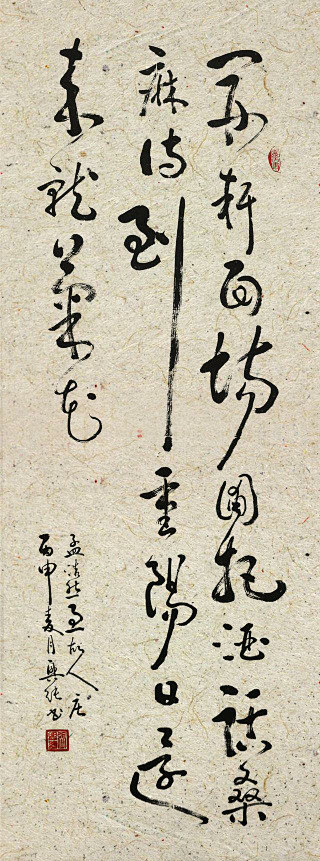 开轩面场圃把酒话桑
麻待到重阳日还
来就菊花
孟浩然过故人庄
丙申麦月兴能书